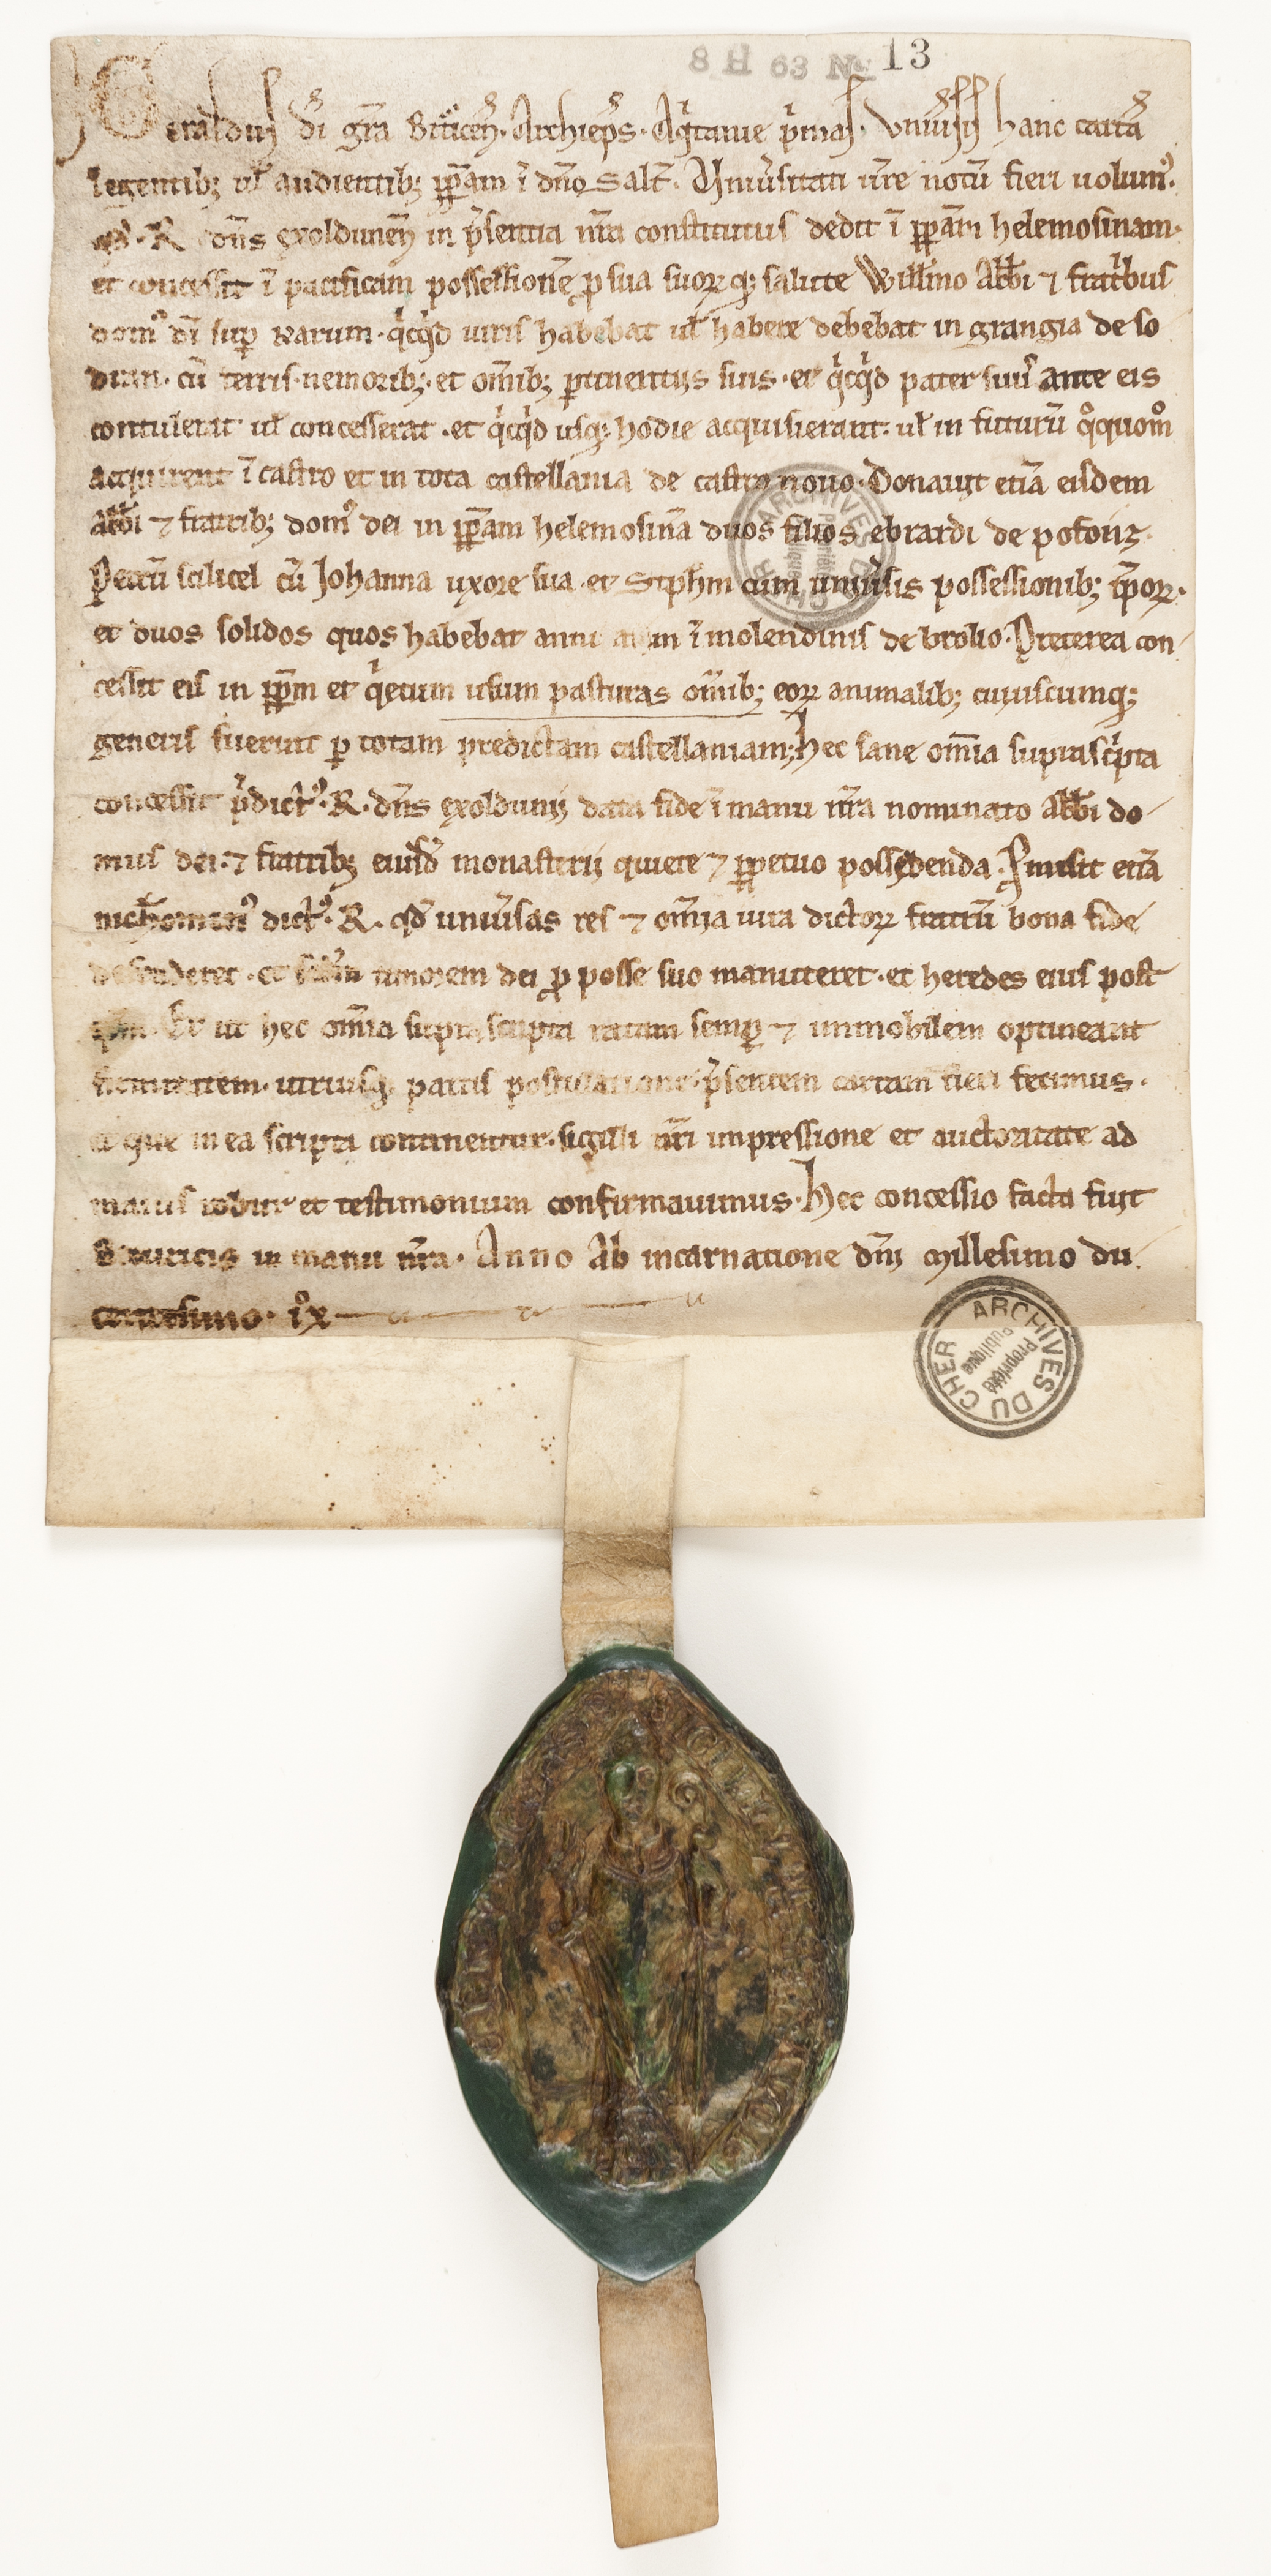 8 H 63 No 13
Geraldus di gra Bituricen. Archieps. Aqitanie pmas. Uniusis hanc cartā
legentib; ul audientib; ppam ī dno salt. Uniusitati nre notū fieri uolum᾿.
R. dns exoldunen in psentia nra constitutus dedit ī ppam helemosinam.
et concessit ī pacificam possessionē p sua suorꝝ q; salute Willmo Abbi ⁊ fratribus
dom᾿ di sup Karum. qicqid iuris habebat ul habere debebat in grangia de so
dun. cū terris. nemorib;. et omib; ptinentiis suis. et qicqid pater suus ante eis
contulerat ul concesserat. et qicqid usq; hodie acquisierant. ul in futurū qoquom
acquirent ī castro et in tota castellania de castro nouo. Donauit etiā eisdem
Abbi ⁊ fratrib; dom᾿ dei in ppam helemosinā duos filios ebrardi de
Petrū scilicet cū Johanna uxore sua. et Stphm cum uniusis possessionib; ipoꝝ.
et duos solidos quos habebat annuatim ī molendinis de brolio. Preterea con
cessit eis in ppm et qietum usum pasturas omib; eoꝝ animalib; cuiuscumq;
generis fuerint p totam predictam castellaniam; hec sane omia suprascipta
concessit pdict᾿. R. dns exolduni; data fide ī manu nra nominato Abbi do
mus dei. ⁊ fratrib; eiusd monasterii quiete ⁊ ppetuo possidenda. Pmisit etiā
nichomin᾿ dict᾿. R. qd uniusas res ⁊ omia iura dictoꝝ fratrū bona fide
defenderet. et scdm timorem dei p posse suo manuteret. et heredes eius post
ipm. Et ut hec omia suprascripta ratam semp ⁊ immobilem optineant
firmitatem. utriusq; partis postulatione. psentem cartam fieri fecimus.
et que in ea scripta continentur. sigilli nri impressione et auctoritate ad
maius robur et testimonium confirmauimus. Hec concessio facta fuit
Bituricis in manu nra. Anno Ab incarnatione dni millesimo du
centesimo. ix
ARCHIVES DU CHER
Propriété
Publique
ARCHIVES DU CHER
Propriété
Publique